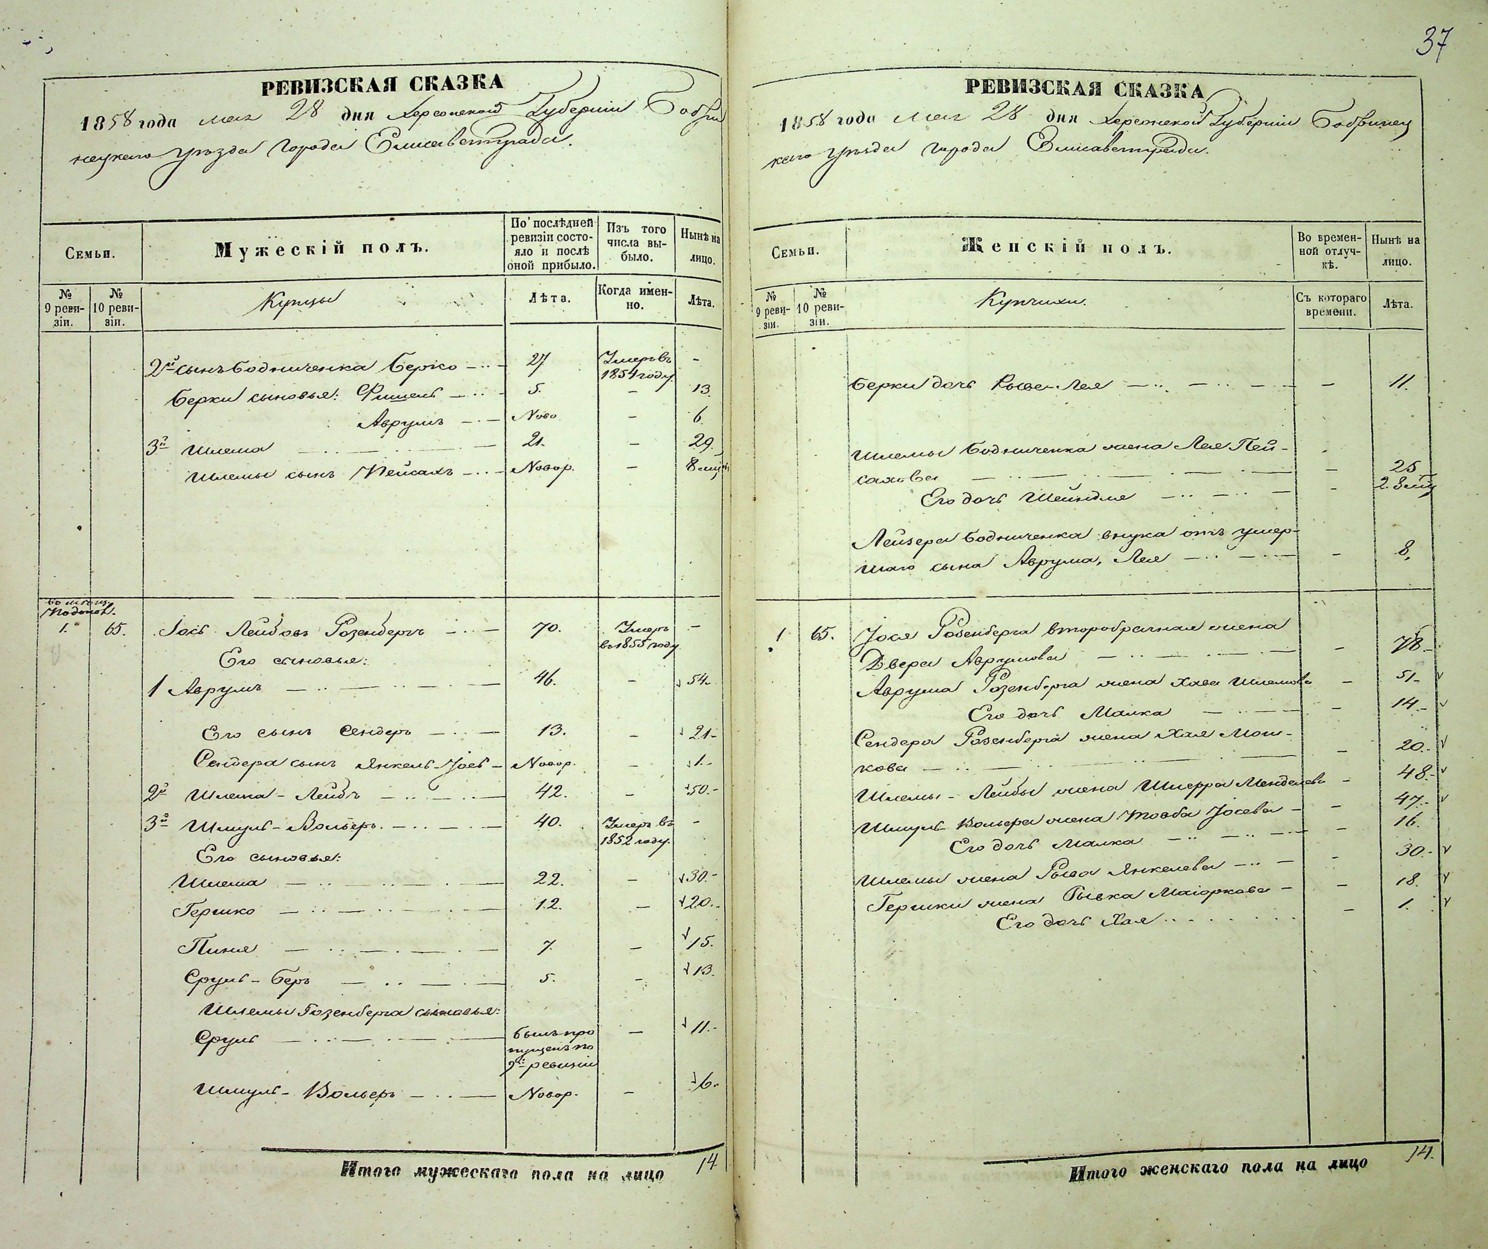 37
РЕВИЗСКАЯ СКАЗКА
1858 года мая 28 дня Херсонской Губерніи Бобри
нецкаго уѣзда города Елисаветграда.
Семьи.
Мужескій полъ.
По послѣдней ревизіи состояло и послѣ оной прибыло.
Изъ того числа выбыло.
Нынѣ на лицо.
№ 9 ревизіи.
№ 10 ревизіи.
Купцы
Лѣта.
Когда именно.
Лѣта.
2й сынъ Бодниченка Берко 27 Умеръ въ 1854 году –
Берки сыновья: Фишель 5. – 13.
Аврумъ Ново – 6
3й Шлема 21. – 29
Шлемы сынъ Пейсахъ Новор. – 8 мц
1. 65. Іось Лейбовъ Розенбергъ 70. Умеръ въ 1855 году –
Его сыновья:
1 Аврумъ 46. – 54.
Его сынъ Сендеръ 13. – 21
Сендера сынъ Янкель-Іось Новор. – 1.
2й Шлема-Лейбъ 42. – 50.
3й Шмуль-Вольфъ 40. Умеръ въ 1852 году. –
Его сыновья:
Шлема 22. – 30.
Гершко 12. – 20.
Пиня 7. – 15.
Сруль-Беръ 5. – 13.
Шлемы Розенберга сыновья:
Сруль былъ пропущенъ по 9й ревизіи – 11.
Шмуль-Вольфъ Новор. – 6.
Итого мужескаго пола на лицо 14
РЕВИЗСКАЯ СКАЗКА
1858 года мая 28 дня Херсонской Губерніи Бобринец
каго уѣзда города Елисаветграда.
Семьи.
Женскій полъ.
Во временной отлучкѣ.
Нынѣ на лицо.
№ 9 ревизіи.
№ 10 ревизіи.
Купчихи.
Съ котораго времени.
Лѣта.
Берки дочь Рыся-Лея – 11.
Шлемы Бодниченка жена Лея Пей-
сахова – 25
Его дочь Шейндля – 2. 8 мц
Лейзера Бодниченка внука отъ умер-
шаго сына Аврума, Лея – 8.
1 65. Іося Розенберга второбрачная жена
Двера Аврумова – 78.
Аврума Розенберга жена Хава Шлемова – 51
Его дочь Малка – 14
Сендера Розенберга жена Хая Мош-
кова – 20
Шлемы-Лейбы жена Шперра Менделевъ – 48
Шмуль Вольфа жена Товба Іосева – 47
Его дочь Малка – 16.
Шлемы жена Рыся Янкелева – 30
Гершки жена Рывка Маіоркова – 18.
Его дочь Хая – 1.
Итого женскаго пола на лицо 14.